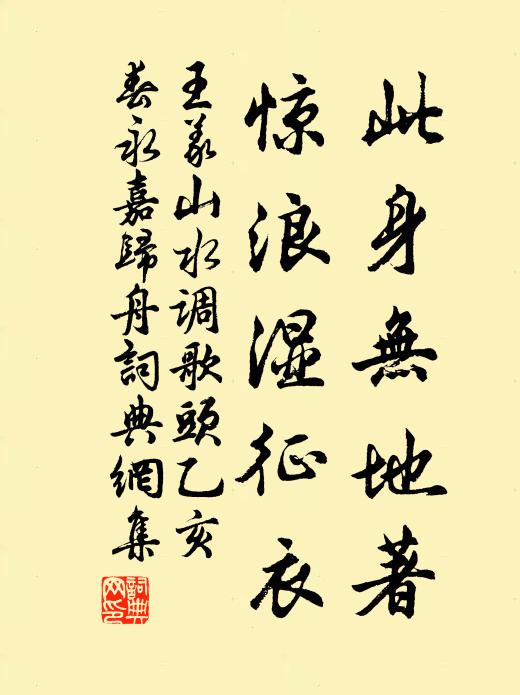 此身無地著
惊浪湿征衣
王义山水调歌頭乙亥
春永嘉歸舟詞典網集
詞典網印